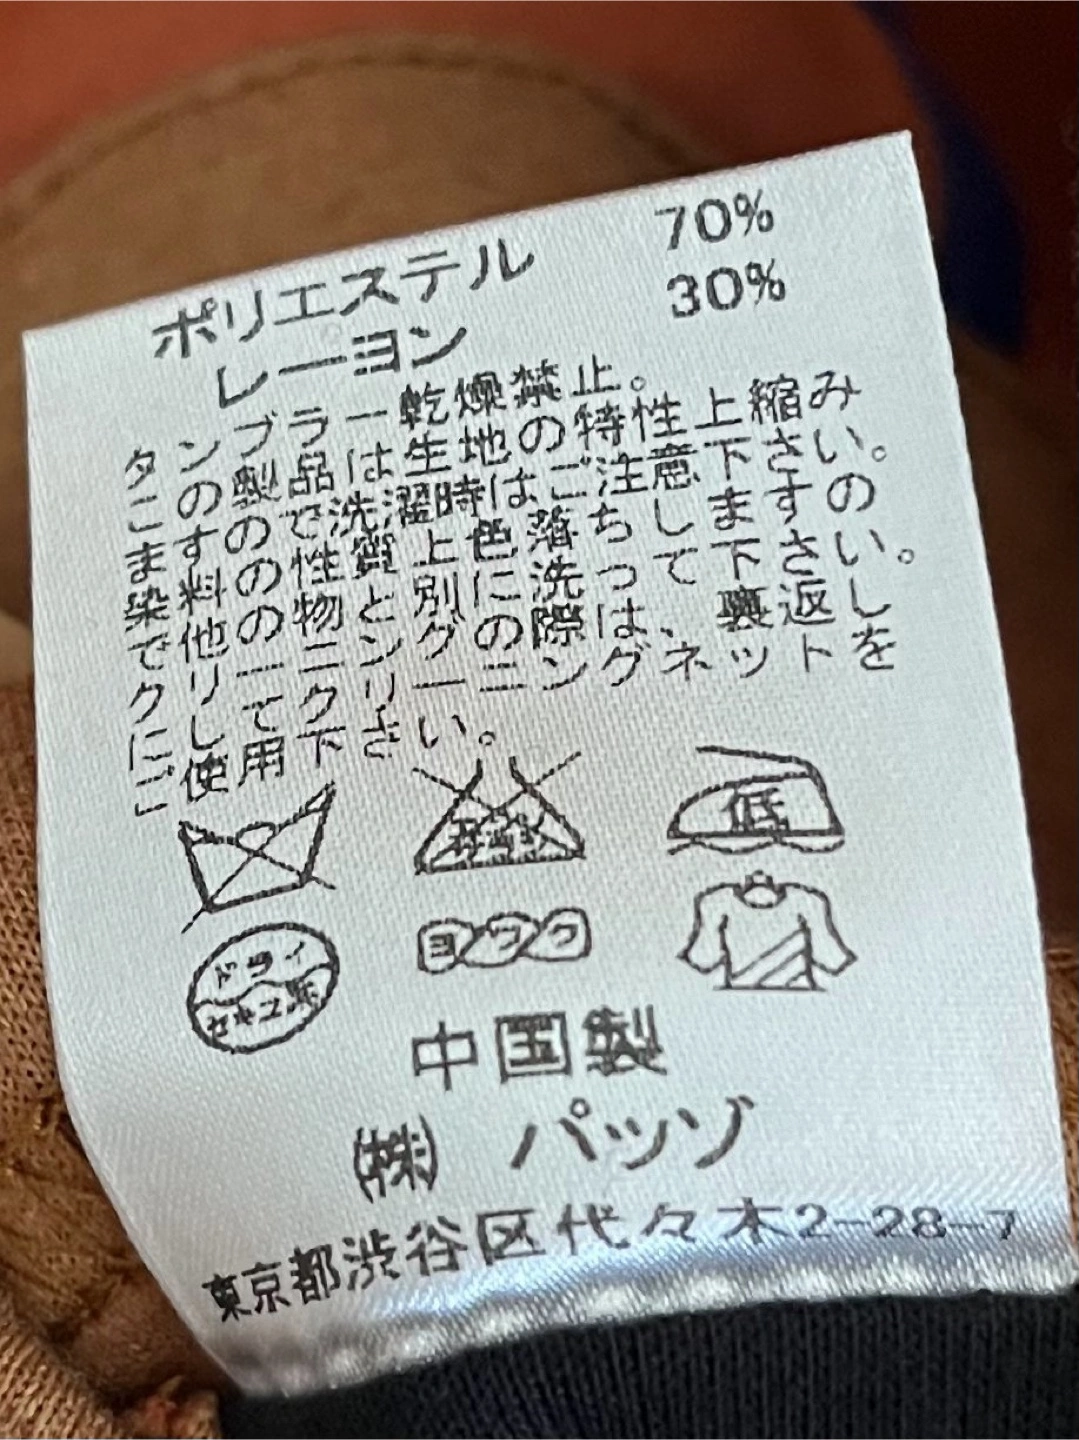 ポリエステル 70%
レーヨン 30%
タンブラー乾燥禁止。
この製品は生地の特性上縮み
ますので洗濯時はご注意下さい。
染料の性質上色落ちしますの
で他の物と別に洗って下さい。
クリーニングの際は、裏返し
にしてクリーニングネットを
ご使用下さい。
低
ドライ
セキユ系
ヨワク
中国製
(株) パッゾ
東京都渋谷区代々木2-28-7